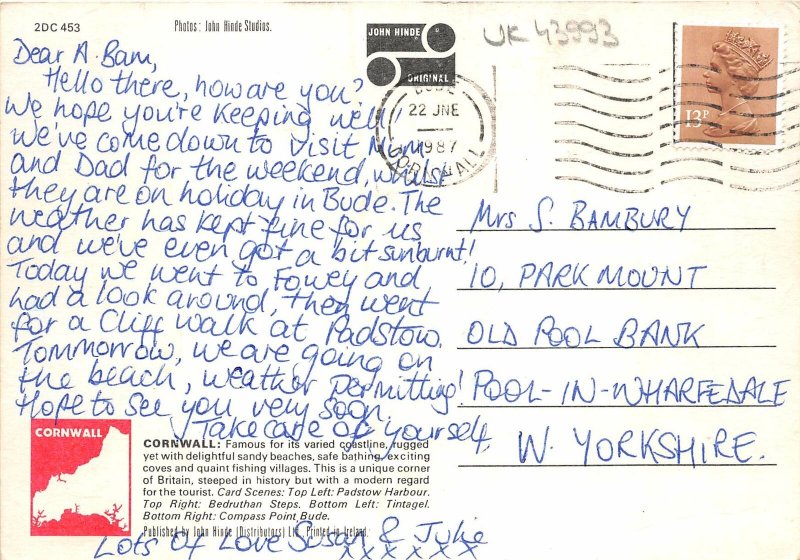 2DC 453
Photos: John Hinde Studios.
JOHN HINDE
ORIGINAL
UK 43993
BUDE
22 JNE
1987
CORNWALL
13P
Dear A. Bam,
Hello there, how are you?
We hope you're keeping well!
We've come down to visit Mum
and Dad for the weekend, whilst
they are on holiday in Bude. The
weather has kept fine for us
and we've even got a bit sunburnt!
Today we went to Fowey and
had a look around, then went
for a Cliff walk at Padstow.
Tommorrow, we are going on
the beach, weather permitting!
Hope to see you very soon.
Take care of yourself.
Lots Of Love Susan & Julie
x x x x x x
Mrs S. BAMBURY
10, PARK MOUNT
OLD POOL BANK
POOL-IN-WHARFEDALE
W. YORKSHIRE.
CORNWALL
CORNWALL: Famous for its varied coastline, rugged
yet with delightful sandy beaches, safe bathing, exciting
coves and quaint fishing villages. This is a unique corner
of Britain, steeped in history but with a modern regard
for the tourist. Card Scenes: Top Left: Padstow Harbour.
Top Right: Bedruthan Steps. Bottom Left: Tintagel.
Bottom Right: Compass Point Bude.
Published by John Hinde (Distributors) Ltd. Printed in Ireland.